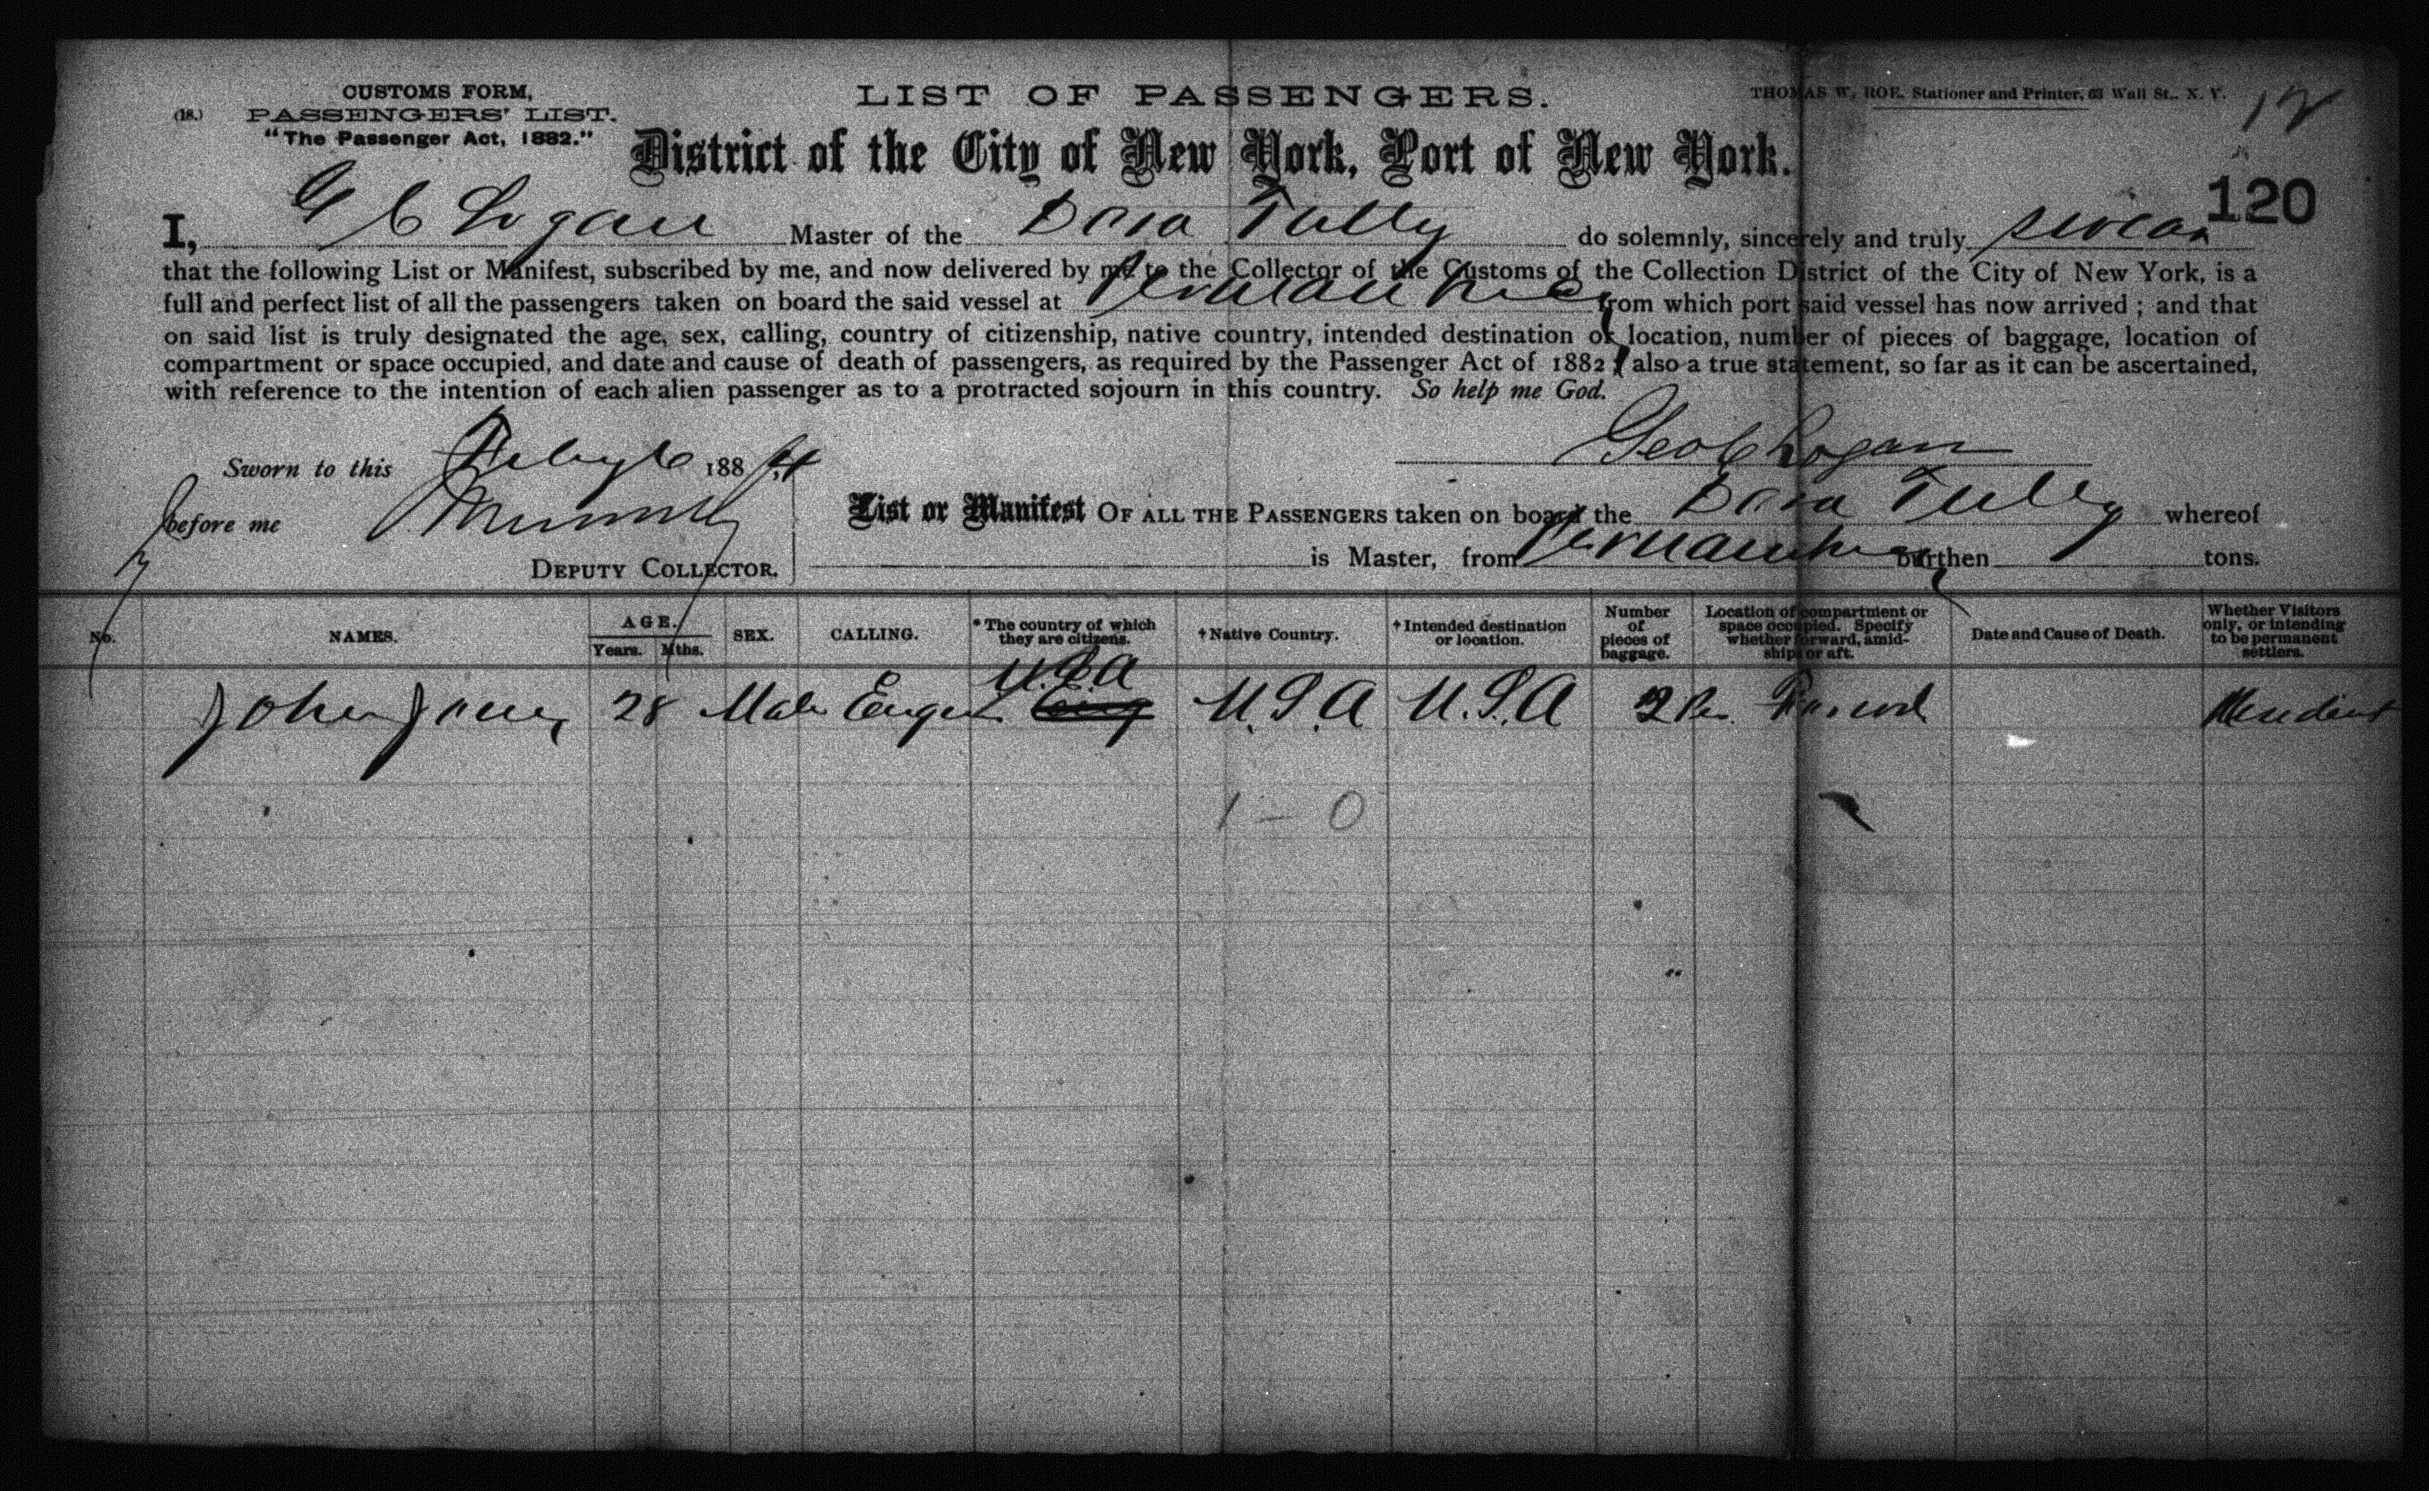 CUSTOMS FORM,
(18.) PASSENGERS' LIST.
"The Passenger Act, 1882."
LIST OF PASSENGERS.
THOMAS W. ROE. Stationer and Printer, 63 Wall St., N. Y.
12
District of the City of New York, Port of New York.
120
I, G C Logan Master of the Dora Tully do solemnly, sincerely and truly swear
that the following List or Manifest, subscribed by me, and now delivered by me to the Collector of the Customs of the Collection District of the City of New York, is a
full and perfect list of all the passengers taken on board the said vessel at Pernambuco from which port said vessel has now arrived ; and that
on said list is truly designated the age, sex, calling, country of citizenship, native country, intended destination or location, number of pieces of baggage, location of
compartment or space occupied, and date and cause of death of passengers, as required by the Passenger Act of 1882 ; also a true statement, so far as it can be ascertained,
with reference to the intention of each alien passenger as to a protracted sojourn in this country. So help me God.
Geo C Logan
Sworn to this Feby 6 188
before me
DEPUTY COLLECTOR.
List or Manifest OF ALL THE PASSENGERS taken on board the Dora Tully whereof
is Master, from Pernambuco burthen tons.
No. NAMES. AGE. Years. Mths. SEX. CALLING. *The country of which they are citizens. †Native Country. †Intended destination or location. Number of pieces of baggage. Location of compartment or space occupied. Specify whether forward, amidships or aft. Date and Cause of Death. Whether Visitors only, or intending to be permanent settlers.
U.S.A
John Jones 28 Male U.S.A U.S.A 2 Forward
1 - 0